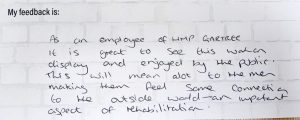 My feedback is:
As an employee of HMP GARTREE
It is great to see this work on
display and enjoyed by the public.
This will mean alot to the men
making them feel some connection
to the outside world - an important
aspect of rehabilitation.